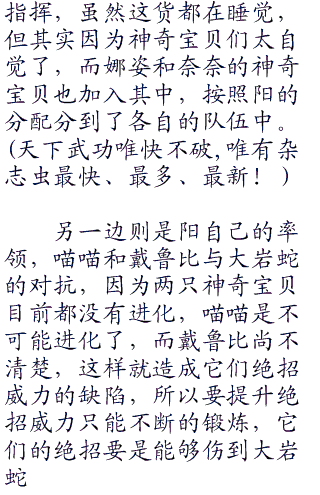 指挥，虽然这货都在睡觉，
但其实因为神奇宝贝们太自
觉了，而娜姿和奈奈的神奇
宝贝也加入其中，按照阳的
分配分到了各自的队伍中。
(天下武功唯快不破,唯有杂
志虫最快、最多、最新！)
另一边则是阳自己的率
领，喵喵和戴鲁比与大岩蛇
的对抗，因为两只神奇宝贝
目前都没有进化，喵喵是不
可能进化了，而戴鲁比尚不
清楚，这样就造成它们绝招
威力的缺陷，所以要提升绝
招威力只能不断的锻炼，它
们的绝招要是能够伤到大岩
蛇